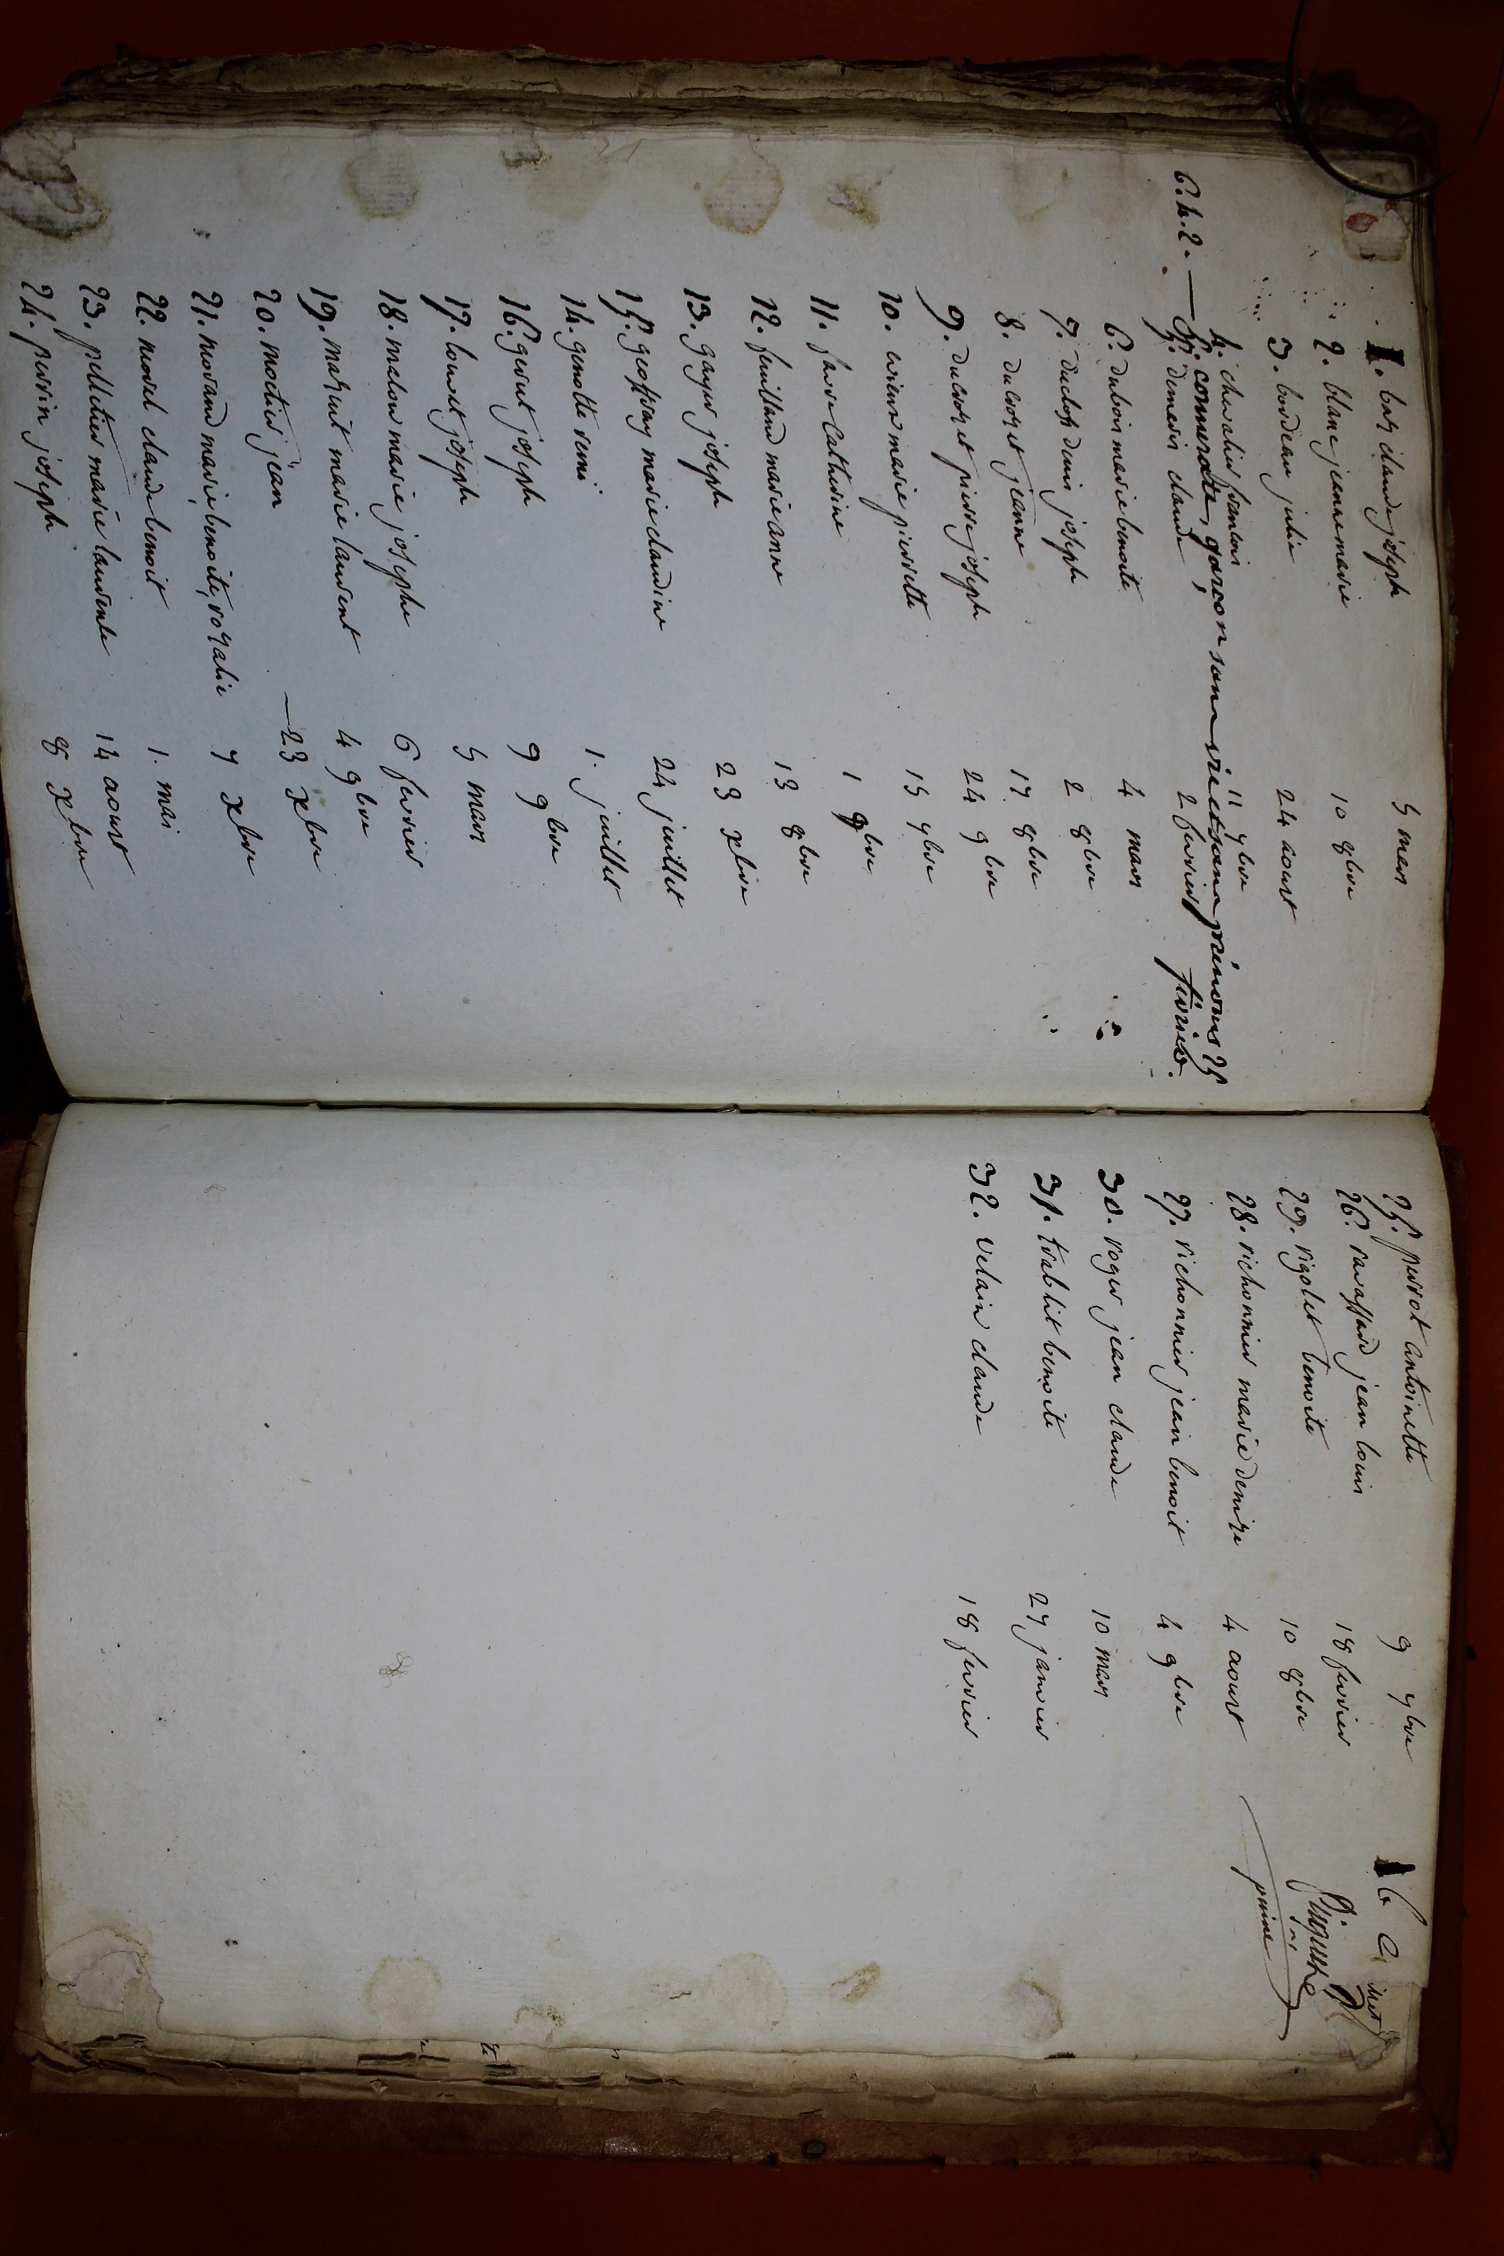 1. bas claude joseph 5 mars
2. blanc jeanne marie 10 8bre
3. bordeau julie 24 aoust
4. chevalier francois 11 7bre
6.4.2. — 5. comerate, garçon sans vie et sans prénoms 25 février.
5. demeris claude 2 fevrier
6. dubois marie benoite 4 mars
7. duclos denis joseph 2 8bre
8. ducroset jeanne 17 8bre
9. ducroset pierre joseph 24 9bre
10. erieux marie pierrette 15 7bre
11. favre catherine 1 9bre
12. feuilland marie anne 13 8bre
13. gayer joseph 23 xbre
15. geoffray marie claudine 24 juillet
14. genotte remi 1. juillet
16. gerent joseph 9 9bre
17. louvet joseph 5 mars
18. melon marie josephe 6 fevrier
19. mazuit marie laurent 4 9bre
20. moctier jean — 23 xbre
21. morand marie benoite, rozalie 7 xbre
22. morel claude benoit 1. mai
23. pelletier marie laurente 14 aoust
24. perrin joseph 8 xbre
25. perrot antoinette 9 7bre
26. ravassard jean louis 18 fevrier
29. rigolet benoite 10 8bre
28. richonnier marie denize 4 aoust
27. richonnier jean benoit 4 9bre
30. roger jean claude 10 mars
31. trablit benoite 27 janvier
32. velain claude 18 fevrier